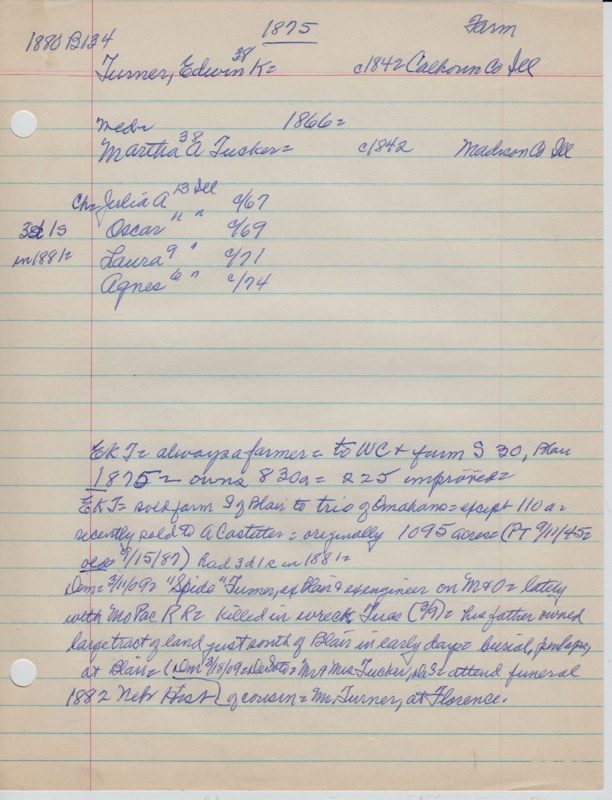 1875 Farm
1880 B134
Turner, Edwin K= 38 c1842 Calhoun Co Ill
Med= 1866=
Martha A Tucker= 38 c1842 Madison Co Ill
Ch= Julia A 13 Ill c/67
3d 1s Oscar " " c/69
in 1881= Laura 9 " c/71
Agnes 6 " c/74
EKT= always a farmer= to WC + farm S 30, Blair
1875= owns 830a= 225 improved=
EKT= sold farm S of Blair to trio of Omahans= except 110a=
recently sold to A Castetter= originally 1095 acres= (PT 9/11/45=
9/15/87) had 3d 1s in 1881=
Dem= 3/11/09= "Spide" Turner, of Blair & ex engineer on M&O= lately
with Mo Pac RR= killed in wreck Tues (3/9)= his father owned
large tract of land just south of Blair in early days= burial, perhaps,
at Blair= (Dem 3/18/09= DeSoto= Mr & Mrs Tucker, DeS= attend funeral
1882 Nebr Hist) of cousin= Mr. Turner, at Florence.